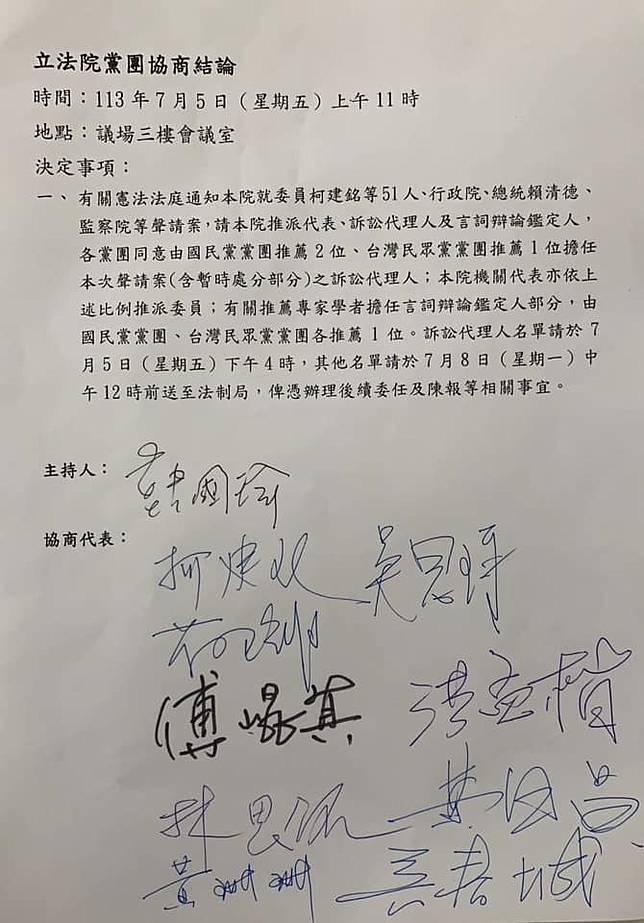 立法院黨團協商結論
時間：113年7月5日（星期五）上午11時
地點：議場三樓會議室
決定事項：
一、有關憲法法庭通知本院就委員柯建銘等51人、行政院、總統賴清德、
監察院等聲請案，請本院推派代表、訴訟代理人及言詞辯論鑑定人，
各黨團同意由國民黨黨團推薦2位、台灣民眾黨黨團推薦1位擔任
本次聲請案(含暫時處分部分)之訴訟代理人；本院機關代表亦依上
述比例推派委員；有關推薦專家學者擔任言詞辯論鑑定人部分，由
國民黨黨團、台灣民眾黨黨團各推薦1位。訴訟代理人名單請於7
月5日（星期五）下午4時，其他名單請於7月8日（星期一）中
午12時前送至法制局，俾憑辦理後續委任及陳報等相關事宜。
主持人：韓國瑜
協商代表：
柯建銘 吳思瑤
傅崐萁 洪孟楷
林思銘
黃珊珊